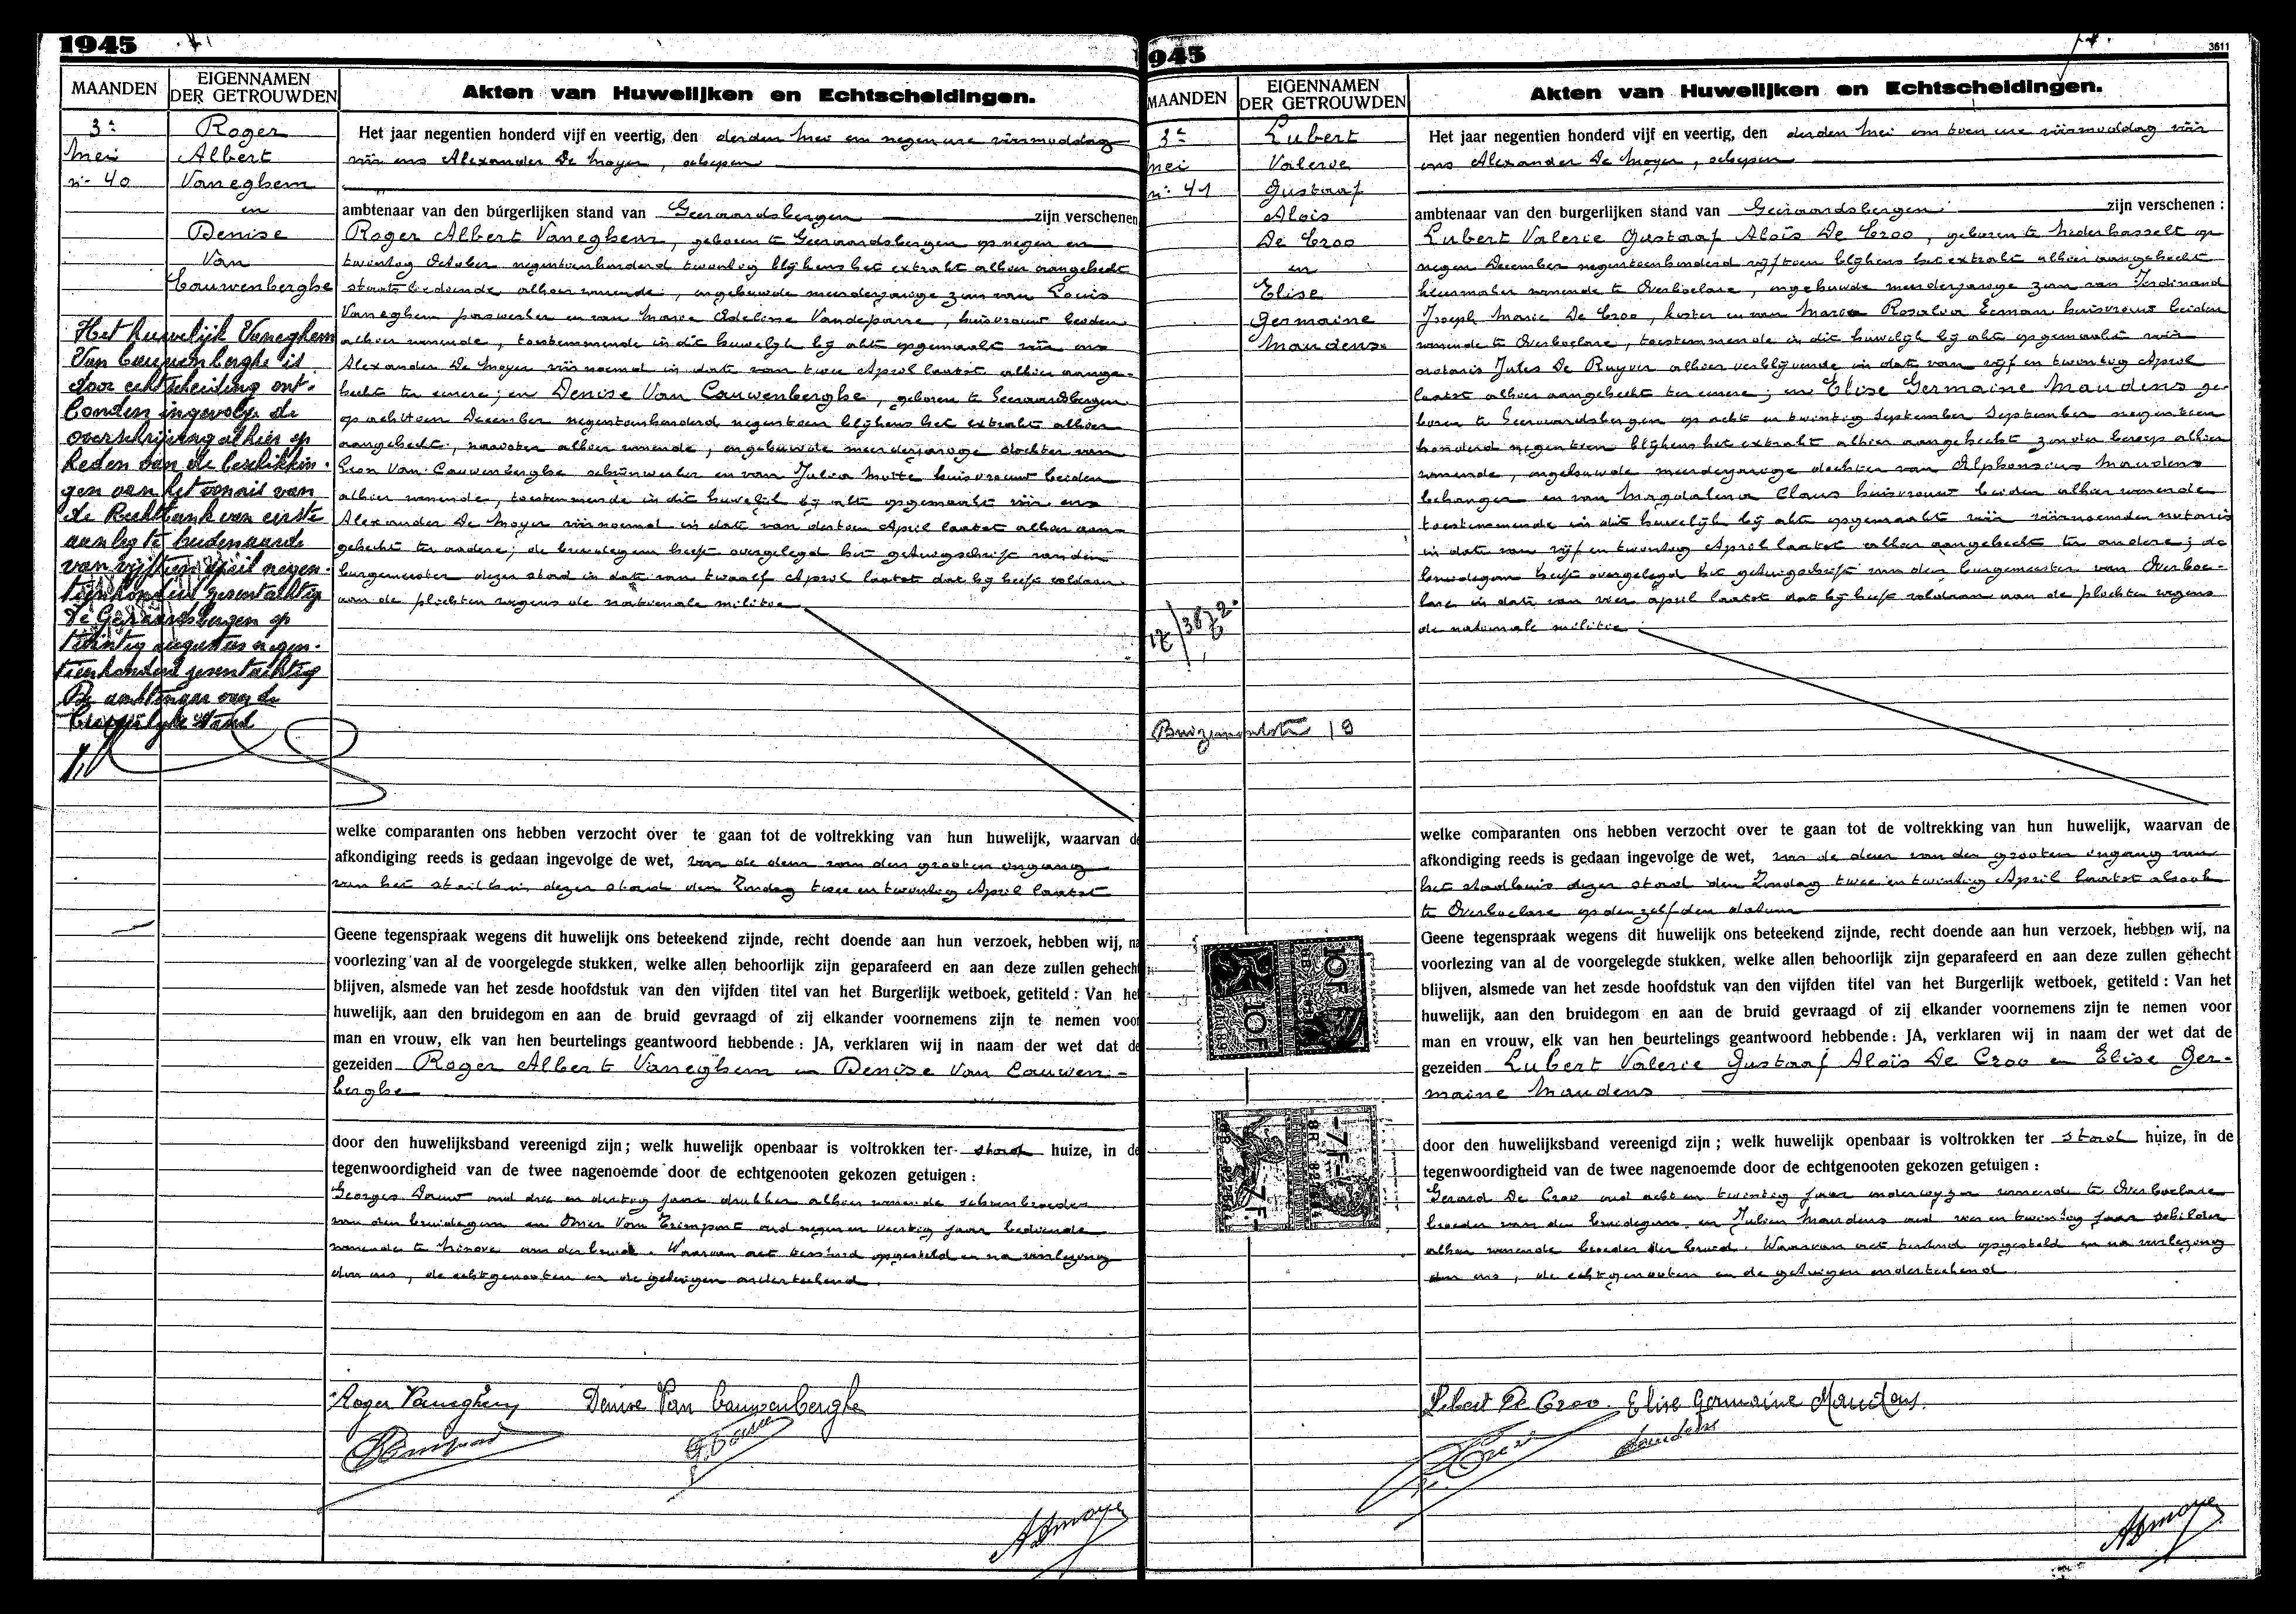 1945
MAANDEN
EIGENNAMEN
DER GETROUWDEN
Akten van Huwelijken en Echtscheidingen.
3e
Mei
n° 40
Roger
Albert
Vaneghem
en
Denise
Van
Cauwenberghe
Het huwelijk Vaneghem
Van Cauwenberghe is
door echtscheiding ont-
bonden ingevolge de
overschrijving alhier op
heden van de beschikkin-
gen van het vonnis van
de Rechtbank van eerste
aanleg te Oudenaarde
van vijftien april negen-
tienhonderd zesentachtig
Te Geraardsbergen op
twintig augustus negen-
tienhonderd zesentachtig
De ambtenaar van de
burgerlijke stand
Het jaar negentien honderd vijf en veertig, den derden Mei om negen ure vóórmiddag
vóór ons Alexander De Moyer, schepen
ambtenaar van den burgerlijken stand van Geeraardsbergen zijn verschenen
Roger Albert Vaneghem, geboren te Geeraardsbergen op negen en
twintig October negentienhonderd twintig blijkens het extrakt alhier aangehecht
staatsbediende alhier wonende, ongehuwde meerderjarige zoon van Louis
Vaneghem en van Marie Adeline Vandeparre, huisvrouw beiden
alhier wonende, toestemmende in dit huwelijk bij akt opgemaakt vóór ons
Alexander De Moyer vóórnoemd in date van twee April laatst alhier aange-
hecht ter eenere; en Denise Van Cauwenberghe, geboren te Geeraardsbergen
op achttien December negentienhonderd negentien blijkens het extrakt alhier
aangehecht, naaister alhier wonende, ongehuwde meerderjarige dochter van
Leon Van Cauwenberghe schrijnwerker en van Julia Motte huisvrouw beiden
alhier wonende, toestemmende in dit huwelijk bij akt opgemaakt vóór ons
Alexander De Moyer vóórnoemd in date van dertien April laatst alhier aan-
gehecht ter andere; de bruidegom heeft overgelegd het getuigschrift van den
burgemeester dezer stad in date van twaalf April laatst dat hij heeft voldaan
aan de plichten wegens de nationale militie
welke comparanten ons hebben verzocht over te gaan tot de voltrekking van hun huwelijk, waarvan de
afkondiging reeds is gedaan ingevolge de wet, van de deur van den grooten ingang
van het stadhuis dezer stad den Zondag twee en twintig April laatst
Geene tegenspraak wegens dit huwelijk ons beteekend zijnde, recht doende aan hun verzoek, hebben wij, na
voorlezing van al de voorgelegde stukken, welke allen behoorlijk zijn geparafeerd en aan deze zullen gehecht
blijven, alsmede van het zesde hoofdstuk van den vijfden titel van het Burgerlijk wetboek, getiteld : Van het
huwelijk, aan den bruidegom en aan de bruid gevraagd of zij elkander voornemens zijn te nemen voor
man en vrouw, elk van hen beurtelings geantwoord hebbende : JA, verklaren wij in naam der wet dat de
gezeiden Roger Albert Vaneghem en Denise Van Cauwen-
berghe
door den huwelijksband vereenigd zijn ; welk huwelijk openbaar is voltrokken ter stad huize, in de
tegenwoordigheid van de twee nagenoemde door de echtgenooten gekozen getuigen :
Georges Dauw oud drie en dertig jaar drukker alhier wonende schoonbroeder
van den bruidegom en Omer Van Trimpont oud negen en veertig jaar bediende
wonende te Ninove oom der bruid. Waarvan act terstond opgesteld en na voorlezing
door ons, de echtgenooten en de getuigen onderteekend.
Roger Vaneghem Denise Van Cauwenberghe
ADmoyer
945
3611
MAANDEN
EIGENNAMEN
DER GETROUWDEN
Akten van Huwelijken en Echtscheidingen.
3e
Mei
n° 41
Lubert
Valerie
Gustaaf
Aloïs
De Croo
en
Elise
Germaine
Maudens
Buizemontstr 19
10F
10F
-7F-
7F-
Het jaar negentien honderd vijf en veertig, den derden Mei om tien ure vóórmiddag vóór
ons Alexander De Moyer, schepen
ambtenaar van den burgerlijken stand van Geeraardsbergen zijn verschenen :
Lubert Valerie Gustaaf Aloïs De Croo, geboren te Nederhasselt op
negen December negentienhonderd vijftien blijkens het extrakt alhier aangehecht
kleermaker wonende te Overboelare, ongehuwde meerderjarige zoon van Ferdinand
Joseph Marie De Croo, koster en van Maria Rosalia Eeman huisvrouw beiden
wonende te Overboelare, toestemmende in dit huwelijk bij akt opgemaakt vóór
notaris Jules De Ruyver alhier verblijvende in date van vijf en twintig April
laatst alhier aangehecht ter eenere; en Elise Germaine Maudens ge-
boren te Geeraardsbergen op acht en twintig September September negentien
honderd negentien blijkens het extrakt alhier aangehecht zonder beroep alhier
wonende, ongehuwde meerderjarige dochter van Alphonsius Maudens
behanger en van Magdalena Claus huisvrouw beiden alhier wonende
toestemmende in dit huwelijk bij akt opgemaakt vóór vóórnoemden notaris
in date van vijf en twintig April laatst alhier aangehecht ter andere; de
bruidegom heeft overgelegd het getuigschrift van den burgemeester van Overboe-
lare in date van vier april laatst dat hij heeft voldaan aan de plichten wegens
de nationale militie
welke comparanten ons hebben verzocht over te gaan tot de voltrekking van hun huwelijk, waarvan de
afkondiging reeds is gedaan ingevolge de wet, van de deur van den grooten ingang van
het stadhuis dezer stad den Zondag twee en twintig April laatst alsook
te Overboelare op denzelfden datum
Geene tegenspraak wegens dit huwelijk ons beteekend zijnde, recht doende aan hun verzoek, hebben wij, na
voorlezing van al de voorgelegde stukken, welke allen behoorlijk zijn geparafeerd en aan deze zullen gehecht
blijven, alsmede van het zesde hoofdstuk van den vijfden titel van het Burgerlijk wetboek, getiteld : Van het
huwelijk, aan den bruidegom en aan de bruid gevraagd of zij elkander voornemens zijn te nemen voor
man en vrouw, elk van hen beurtelings geantwoord hebbende : JA, verklaren wij in naam der wet dat de
gezeiden Lubert Valerie Gustaaf Aloïs De Croo en Elise Ger-
maine Maudens
door den huwelijksband vereenigd zijn ; welk huwelijk openbaar is voltrokken ter stad huize, in de
tegenwoordigheid van de twee nagenoemde door de echtgenooten gekozen getuigen :
Gerard De Croo oud acht en twintig jaar onderwijzer wonende te Overboelare
broeder van den bruidegom en Julien Maudens oud vier en twintig jaar schilder
alhier wonende broeder der bruid. Waarvan act terstond opgesteld en na voorlezing
door ons, de echtgenooten en de getuigen onderteekend.
Lubert De Croo. Elise Germaine Maudens.
Maudens
ADmoyer